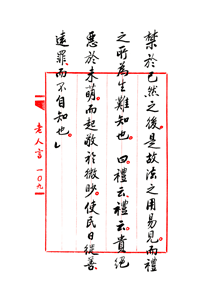 禁於已然之後是故法之用易見而禮
之所為生難知也曰禮云禮云貴絕
惡於未萌而起敬於微眇使民日從善
遠罪而不自知也」
老人言 一〇九